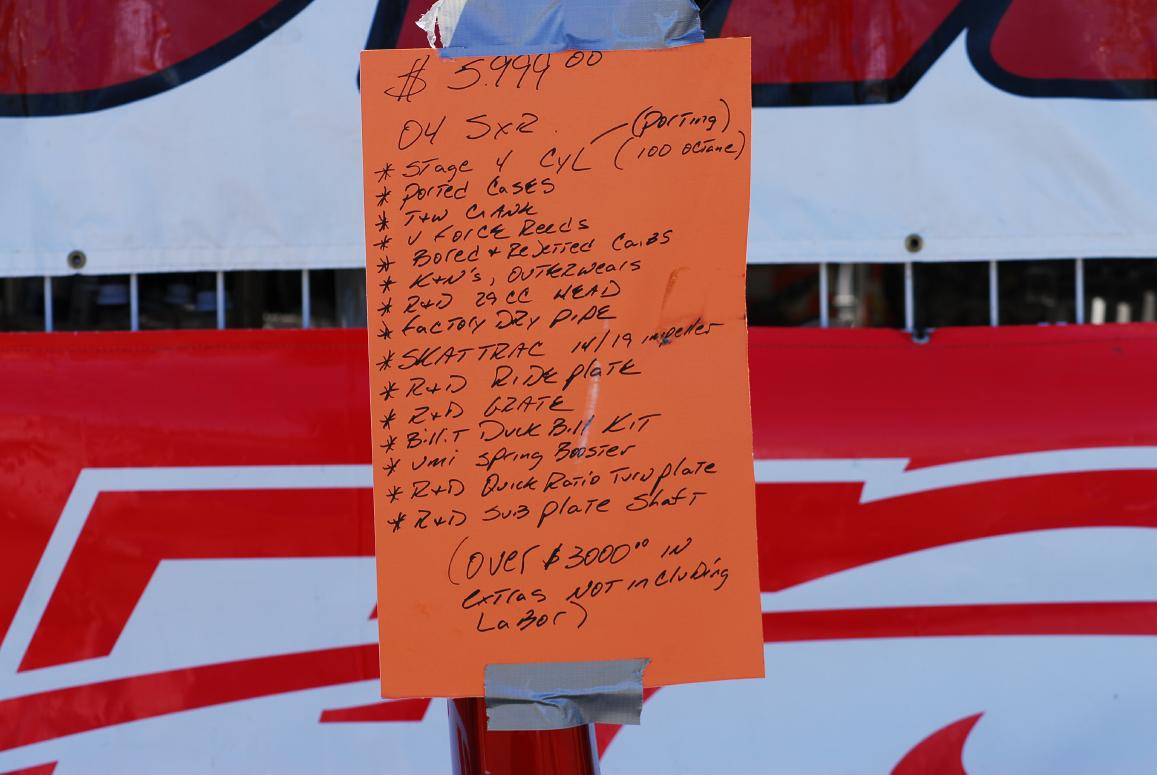 $ 5.999 00
04 SxR (Porting)
* STage 4 CYL (100 octane)
* Ported Cases
* T+W CRANK
* V FORCE Reeds
* Bored + ReJetted Carbs
* K+N's, OUTERwears
* R+D 29cc HEAD
* Factory DRY PIPE
* SKAT TRAC 14/19 impeller
* R+D RIDE plate
* R+D GRATE
* BilliT Duck Bill KIT
* UMI Spring Booster
* R+D Quick Ratio Turn plate
* R+D SUB plate Shaft
(over $3000 00 IN
extras NOT including
Labor)